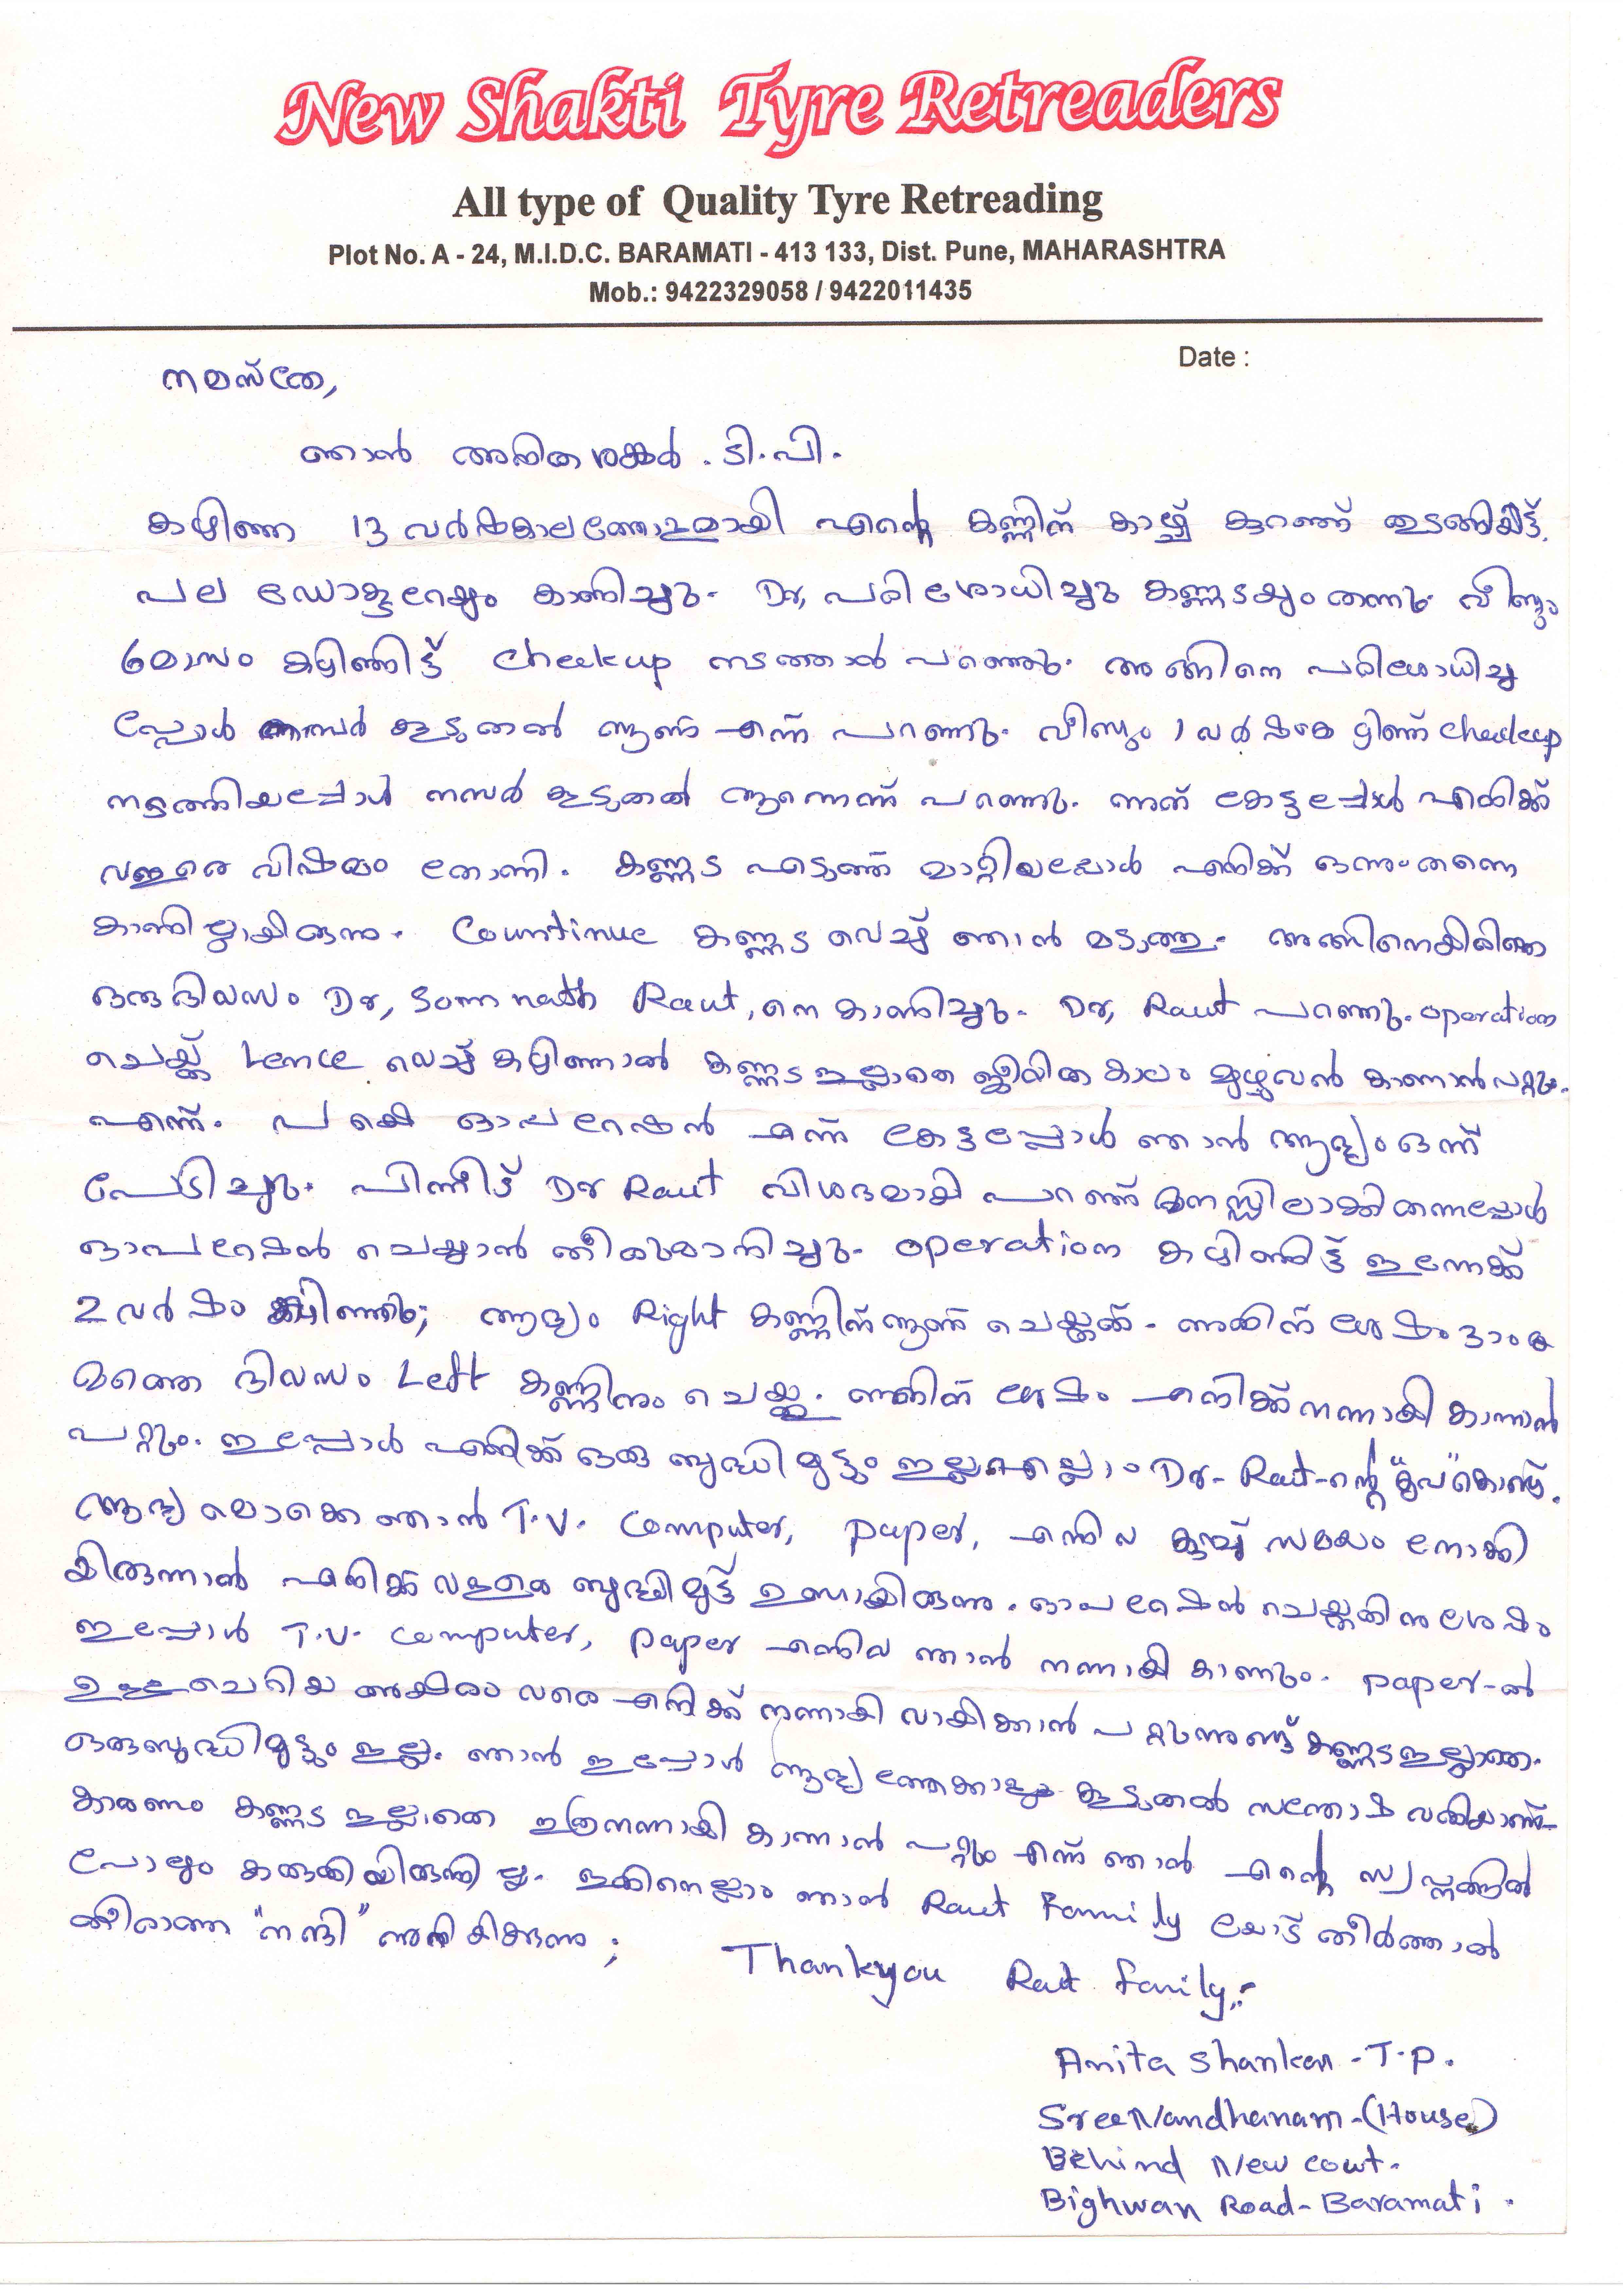 New Shakti Tyre Retreaders
All type of Quality Tyre Retreading
Plot No. A - 24, M.I.D.C. BARAMATI - 413 133, Dist. Pune, MAHARASHTRA
Mob.: 9422329058 / 9422011435
Date :
നമസ്തേ,
ഞാൻ അനിത ശങ്കർ . ടി.പി.
കഴിഞ്ഞ 13 വർഷകാലത്തോളമായി എന്റെ കണ്ണിന് കാഴ്ച്ച കുറഞ്ഞ് തുടങ്ങിയിട്ട്.
പല ഡോക്ടറേയും കാണിച്ചു. Dr, പരിശോധിച്ചു കണ്ണടയും തന്നു. വീണ്ടും
6മാസം കഴിഞ്ഞിട്ട് checkup നടത്താൻ പറഞ്ഞു. അങ്ങിനെ പരിശോധിച്ച
പ്പോൾ നമ്പർ കൂടുതൽ ആണ് എന്ന് പറഞ്ഞു. വീണ്ടും 1 വർഷം കഴിഞ്ഞ് checkup
നടത്തിയപ്പോൾ നമ്പർ കൂടുതൽ ആണെന്ന് പറഞ്ഞു. അത് കേട്ടപ്പോൾ എനിക്ക്
വളരെ വിഷമം തോന്നി. കണ്ണട എടുത്ത് മാറ്റിയപ്പോൾ എനിക്ക് ഒന്നുംതന്നെ
കാണില്ലായിരുന്നു. Countinue കണ്ണട വെച്ച് ഞാൻ മടുത്തു. അങ്ങിനെയിരിത്തെ
ഒരുദിവസം Dr, Somnath Raut, നെ കാണിച്ചു. Dr, Raut പറഞ്ഞു. operation
ചെയ്ത് Lence വെച്ച് കഴിഞ്ഞാൽ കണ്ണട ഇല്ലാതെ ജീവിത കാലം മുഴുവൻ കാണാൻ പറ്റും.
എന്ന്. പക്ഷെ ഓപ്പറേഷൻ എന്ന് കേട്ടപ്പോൾ ഞാൻ ആദ്യം ഒന്ന്
പേടിച്ചു. പിന്നീട് Dr Raut വിശദമായി പറഞ്ഞ് മനസ്സിലാക്കി തന്നപ്പോൾ
ഓപറേഷൻ ചെയ്യാൻ തീരുമാനിച്ചു. operation കഴിഞ്ഞിട്ട് ഇന്നേക്ക്
2 വർഷം കഴിഞ്ഞു; ആദ്യം Right കണ്ണിന് ആണ് ചെയ്തത്. അതിന് ശേഷം 3ാം
മത്തെ ദിവസം Left കണ്ണിനും ചെയ്തു. അതിന് ശേഷം എനിക്ക് നന്നായി കാണാൻ
പറ്റും. ഇപ്പോൾ എനിക്ക് ഒരു ബുദ്ധിമുട്ടും ഇല്ല എല്ലാം Dr- Raut-ന്റെ "കൃപ" കൊണ്ട്.
ആദ്യമൊക്കെ ഞാൻ T.V. Computer, paper, എന്നിവ കുറച്ച് സമയം നോക്കി
യിരുന്നാൽ എനിക്ക് വളരെ ബുദ്ധിമുട്ട് ഉണ്ടായിരുന്നു. ഓപറേഷൻ ചെയ്തതിനുശേഷം
ഇപ്പോൾ T.V. computer, paper എന്നിവ ഞാൻ നന്നായി കാണും. paper-ൽ
ഉള്ള ചെറിയ അക്ഷരം വരെ എനിക്ക് നന്നായി വായിക്കാൻ പറ്റുന്നുണ്ട് കണ്ണട ഇല്ലാതെ.
ഒരുബുദ്ധിമുട്ടും ഇല്ല. ഞാൻ ഇപ്പോൾ ആദ്യത്തേക്കാളും കൂടുതൽ സന്തോഷവതിയാണ്
കാരണം കണ്ണട ഇല്ലാതെ ഇത്രനന്നായി കാണാൻ പറ്റും എന്ന് ഞാൻ എന്റെ സ്വപ്നത്തിൽ
പോലും കരുതിയിരുന്നില്ല. ഇതിനെല്ലാം ഞാൻ Raut Family യോട് തീർത്താൽ
തീരാത്ത "നന്ദി" അറിയിക്കുന്നു;
Thankyou Raut family,:-
Anita Shankar - T.P.
SreeNandhanam-(House)
Behind New Court.
Bighwan Road- Baramati.